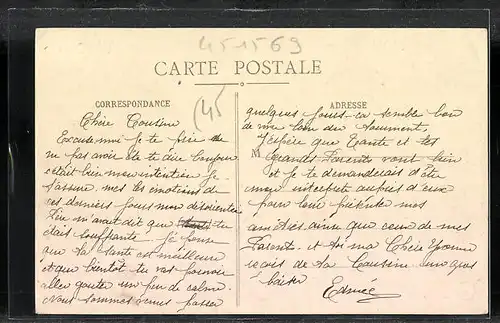 451569
CARTE POSTALE
CORRESPONDANCE
ADRESSE
(45
Chère Cousine
Excuse moi je te prie de
ne pas avoir été te dire bonjour
c'était bien mon intention je
t'assure mes les émotions de
ces derniers jours
m'avait dit que tu
étais souffrante j'
que ta santé est meilleure
et que bientôt tu vas pouvoir
aller goûter un peu de calme.
Nous sommes venus passer
quelques jours ça semble bon
de vivre loin des
J'espère que Tante et tes
M
Grands Parents vont bien
et je te demanderais d'être
mon interprète auprès d'eux
pour leur présenter mes
amitiés ainsi que ceux de mes
Parents. et toi ma Chère Yvonne
reçois de ta Cousine un gros
baiser
Edmée